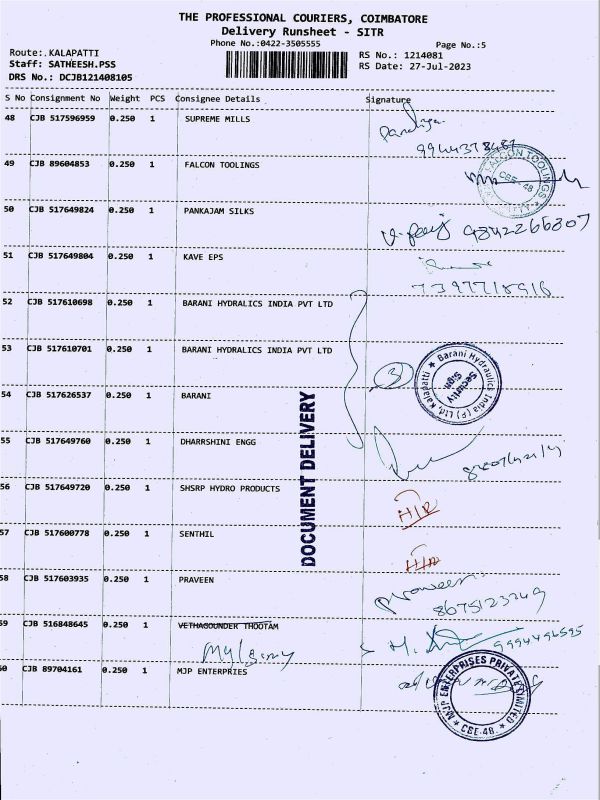 THE PROFESSIONAL COURIERS, COIMBATORE
Delivery Runsheet - SITR
Phone No.:0422-3505555
Page No.:5
Route:.KALAPATTI
RS No.: 1214081
Staff: SATHEESH.PSS
RS Date: 27-Jul-2023
DRS No.: DCJB121408105
S No Consignment No Weight PCS Consignee Details Signature
48 CJB 517596959 0.250 1 SUPREME MILLS
49 CJB 89604853 0.250 1 FALCON TOOLINGS
FALCON TOOLINGS
CBE-48
50 CJB 517649824 0.250 1 PANKAJAM SILKS
9842266307
51 CJB 517649804 0.250 1 KAVE EPS
7397718916
52 CJB 517610698 0.250 1 BARANI HYDRALICS INDIA PVT LTD
53 CJB 517610701 0.250 1 BARANI HYDRALICS INDIA PVT LTD
3
Barani Hydraulics India (P) Ltd. Kalapatti
Security
Sign
54 CJB 517626537 0.250 1 BARANI
DOCUMENT DELIVERY
55 CJB 517649760 0.250 1 DHARRSHINI ENGG
56 CJB 517649720 0.250 1 SHSRP HYDRO PRODUCTS
H/R
57 CJB 517600778 0.250 1 SENTHIL
58 CJB 517603935 0.250 1 PRAVEEN
Praveen
8675123249
59 CJB 516848645 0.250 1 VETHAGOUNDER THOOTAM
9994496595
60 CJB 89704161 0.250 1 MJP ENTERPRIES
MJP ENTERPRISES PRIVATE LIMITED
CBE-48.